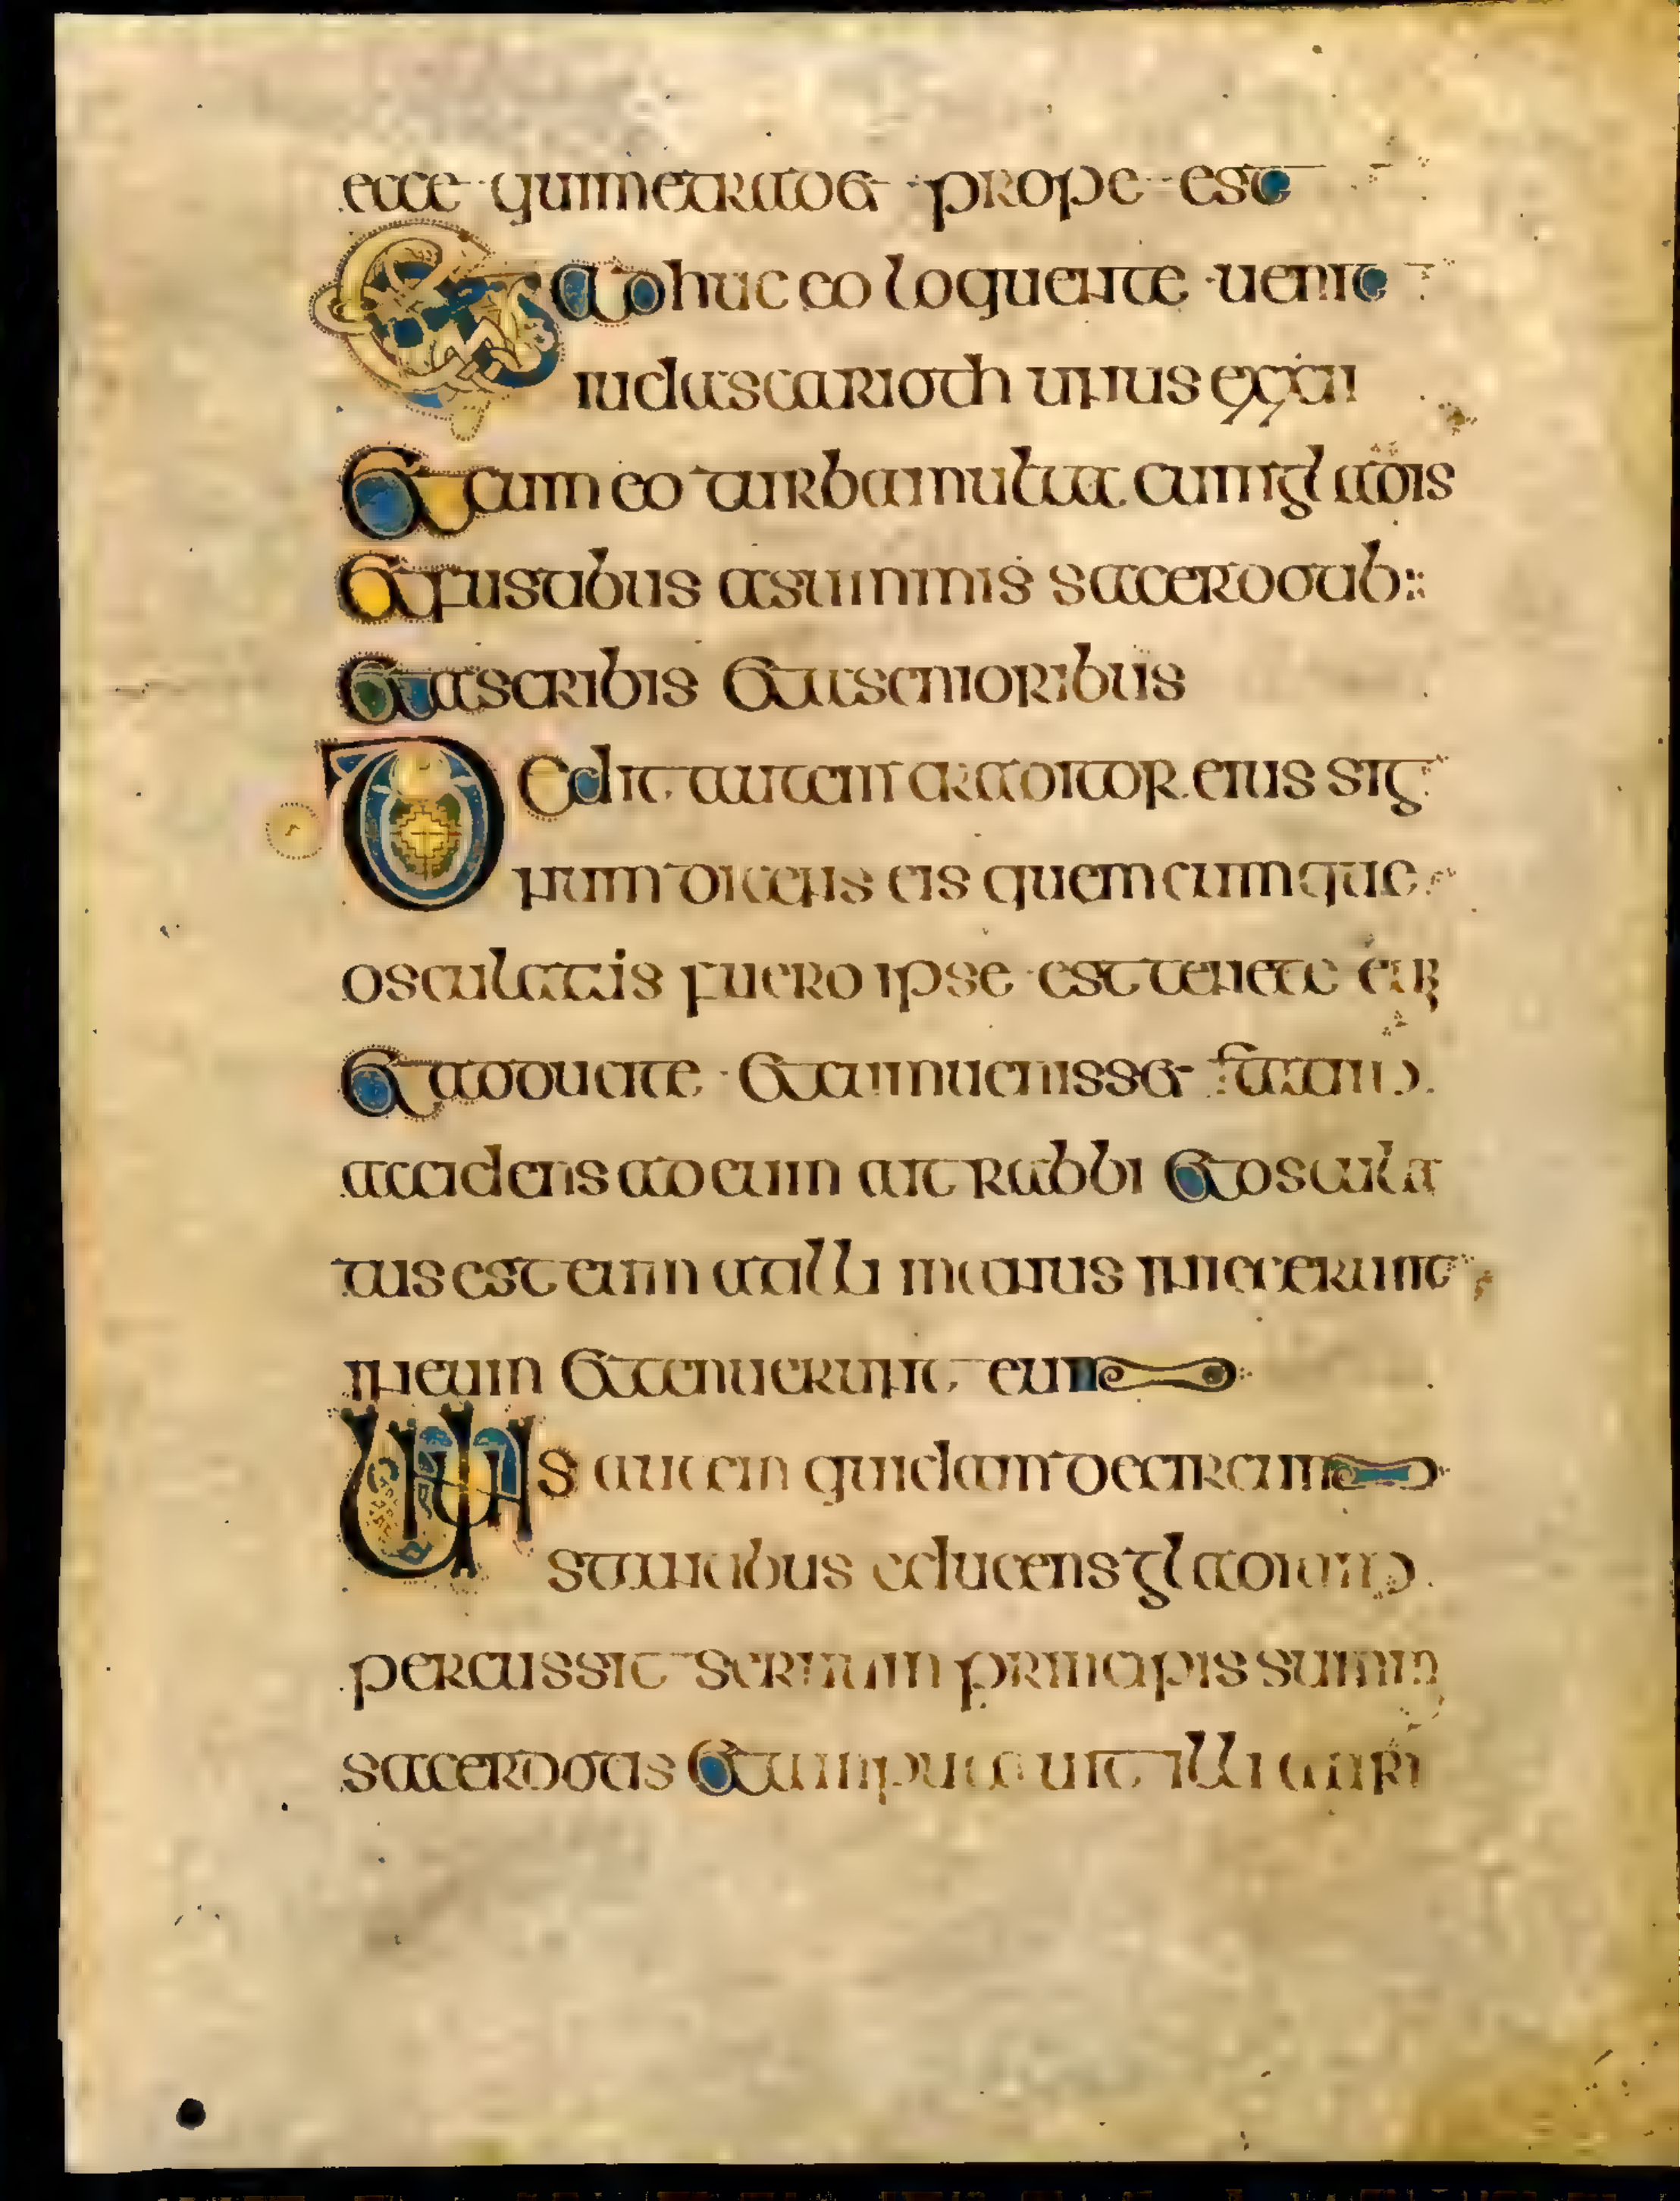 ecce qui me tradet prope est
Et adhuc eo loquente uenit
iudas scarioth unus ex xii
Et cum eo turba multa cum gladis
Et fustibus a summis sacerdotib:
Et a scribis Et a senioribus
Dedit autem traditor eius sig
num dicens eis quemcumque
osculatus fuero ipse est tenete eum
Et adducite Et cum uenisset statim
accidens ad eum ait rabbi Et oscula
tus est eum at illi manus iniecerunt
in eum Et tenuerunt eum
Unus autem quidam de circum
stantibus educens gladium
percussit seruum principis summi
sacerdotis Et amputauit illi auri